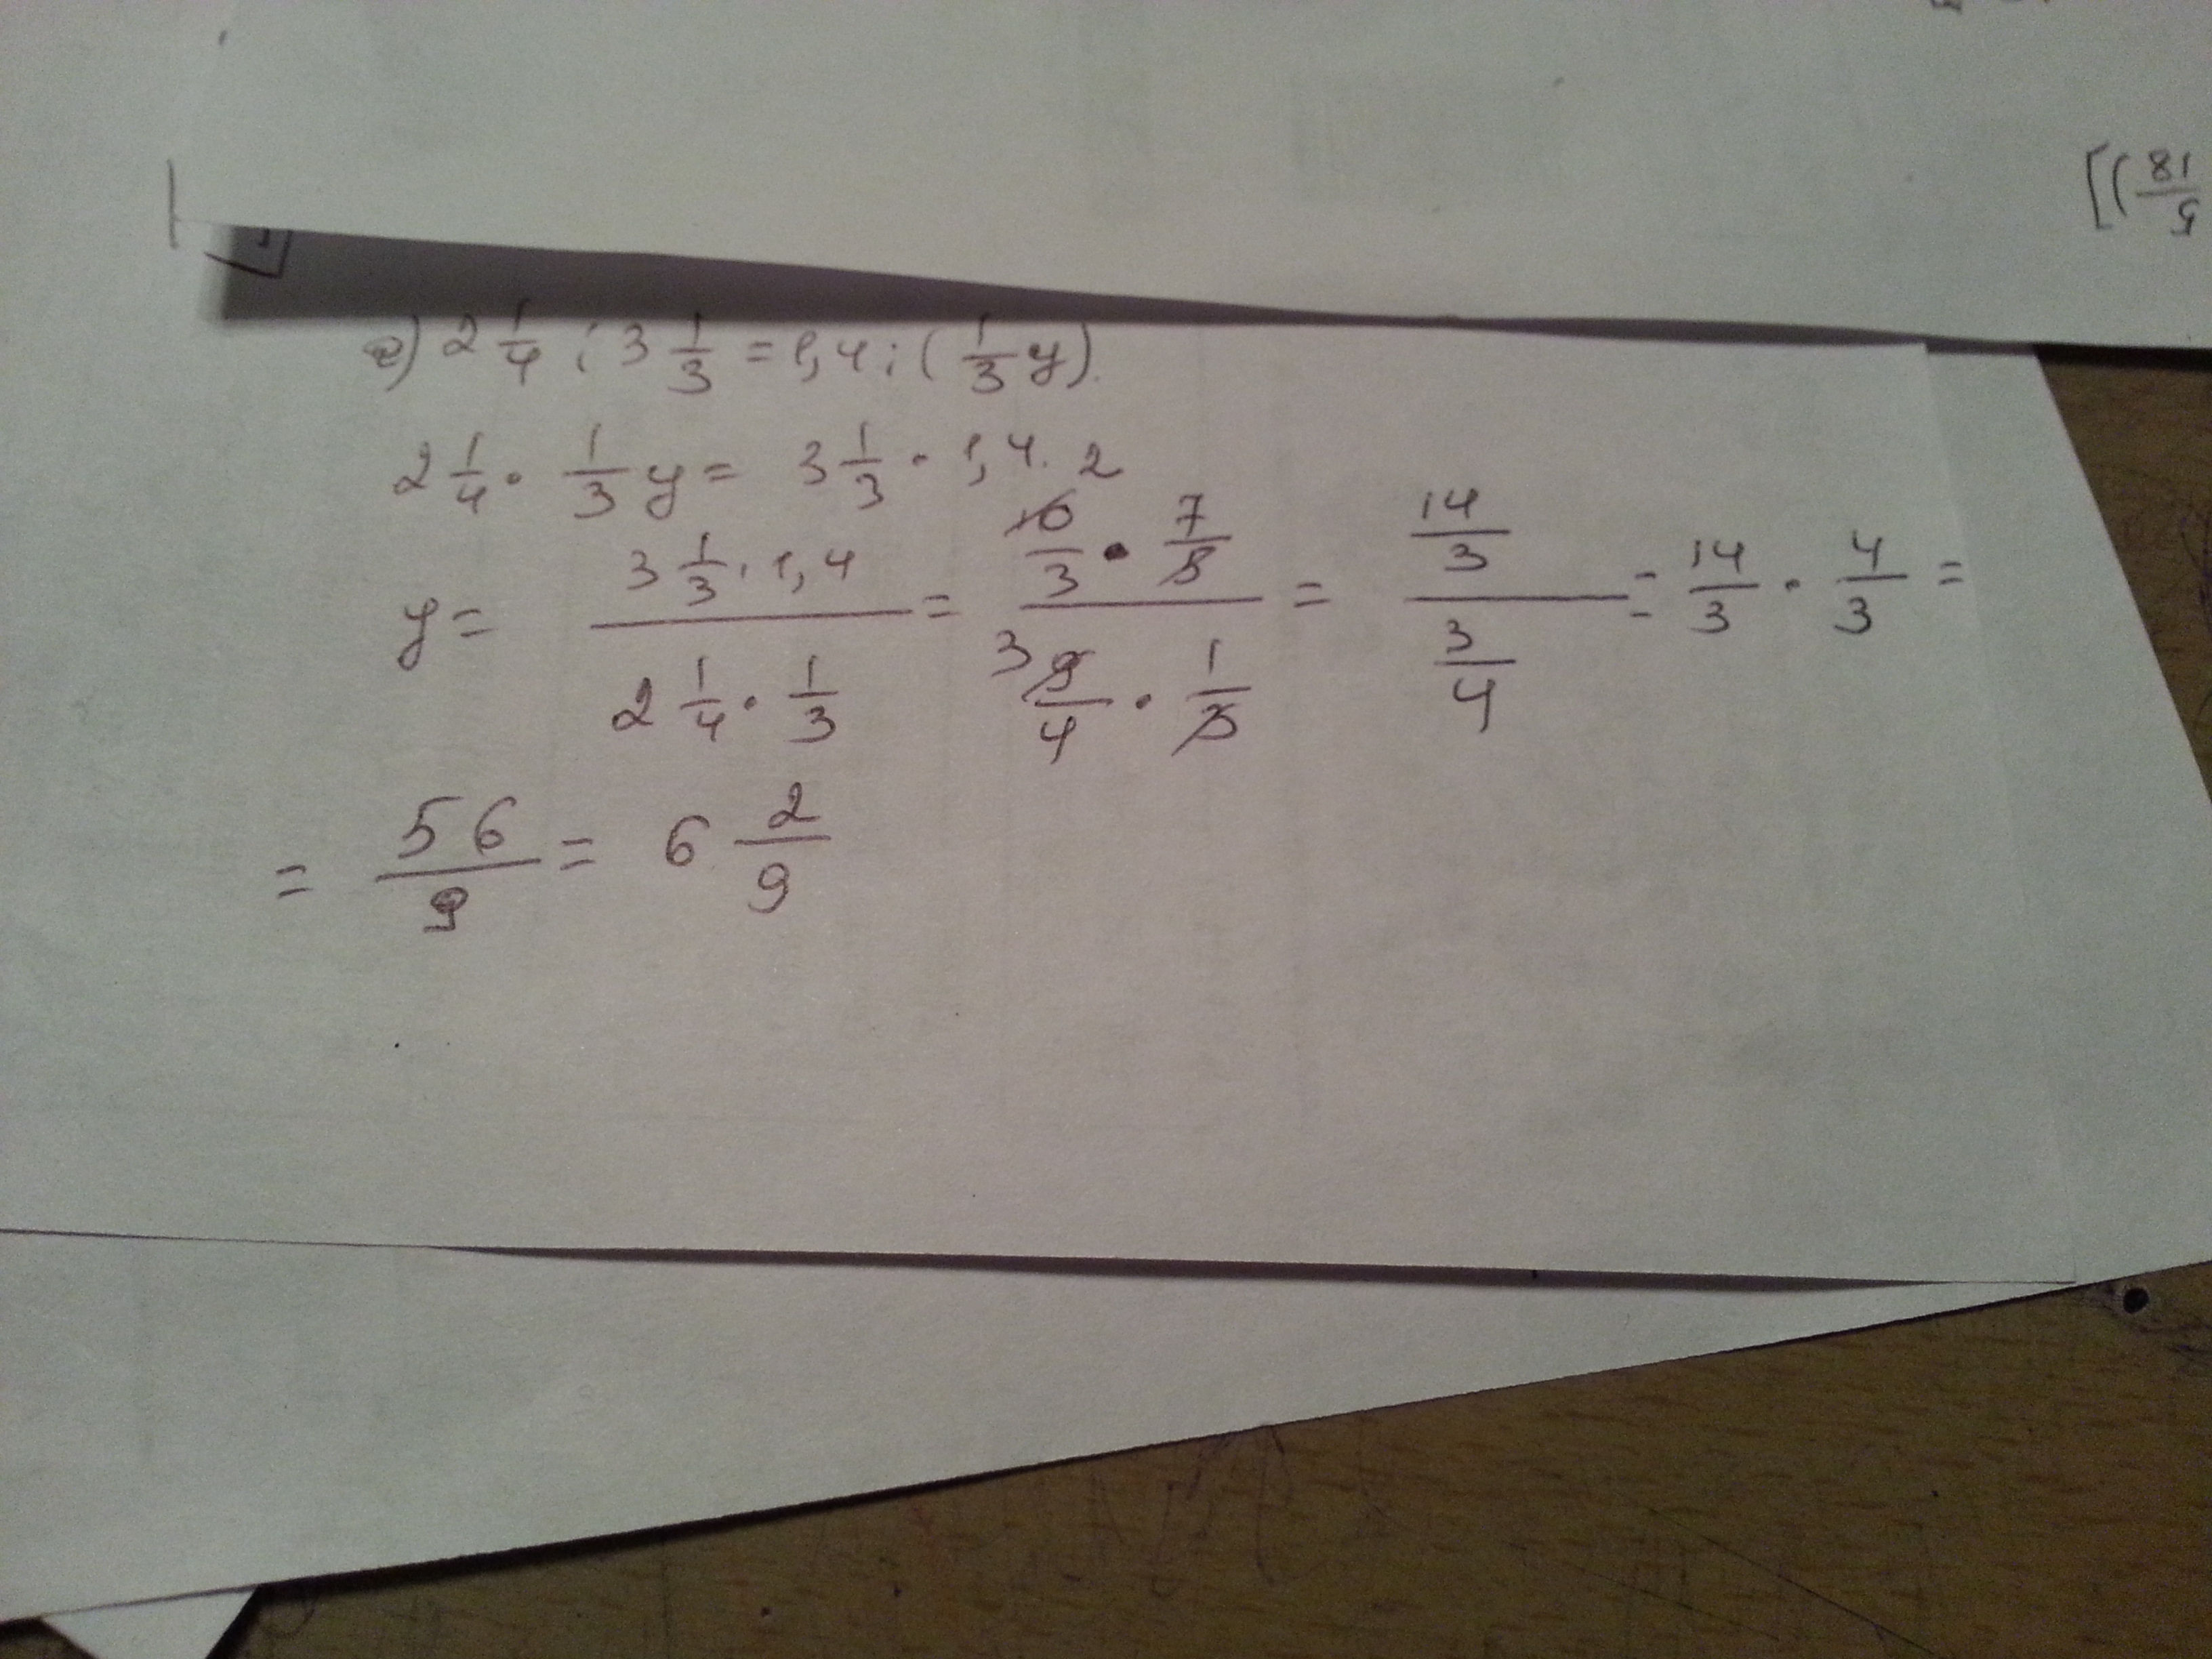 [(18/5
e) 2 1/4 : 3 1/3 = 1,4 : (1/3 y).
2 1/4 · 1/3 y = 3 1/3 · 1,4.
y = (3 1/3 · 1,4)/(2 1/4 · 1/3) = (10/3 · 7/5)/(9/4 · 1/3) = (14/3)/(3/4) = 14/3 · 4/3 =
= 56/9 = 6 2/9